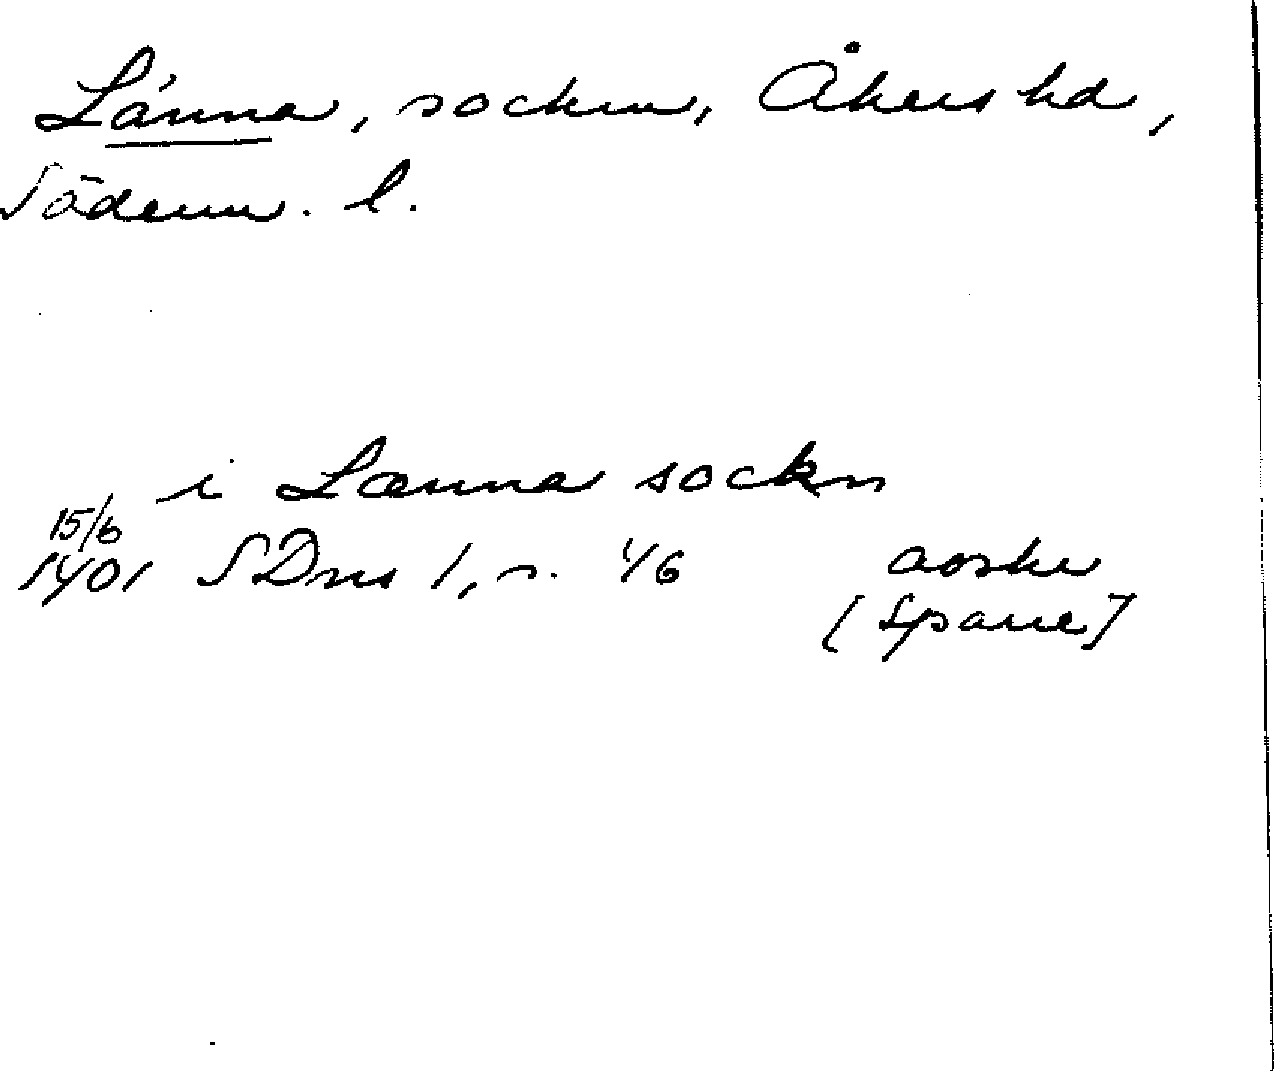 Länna, socken, Åkers hd,
Söderm. l.
i Lænna sockn
15/6
1401 SDns 1, s. 46 avskr
[Sparre]